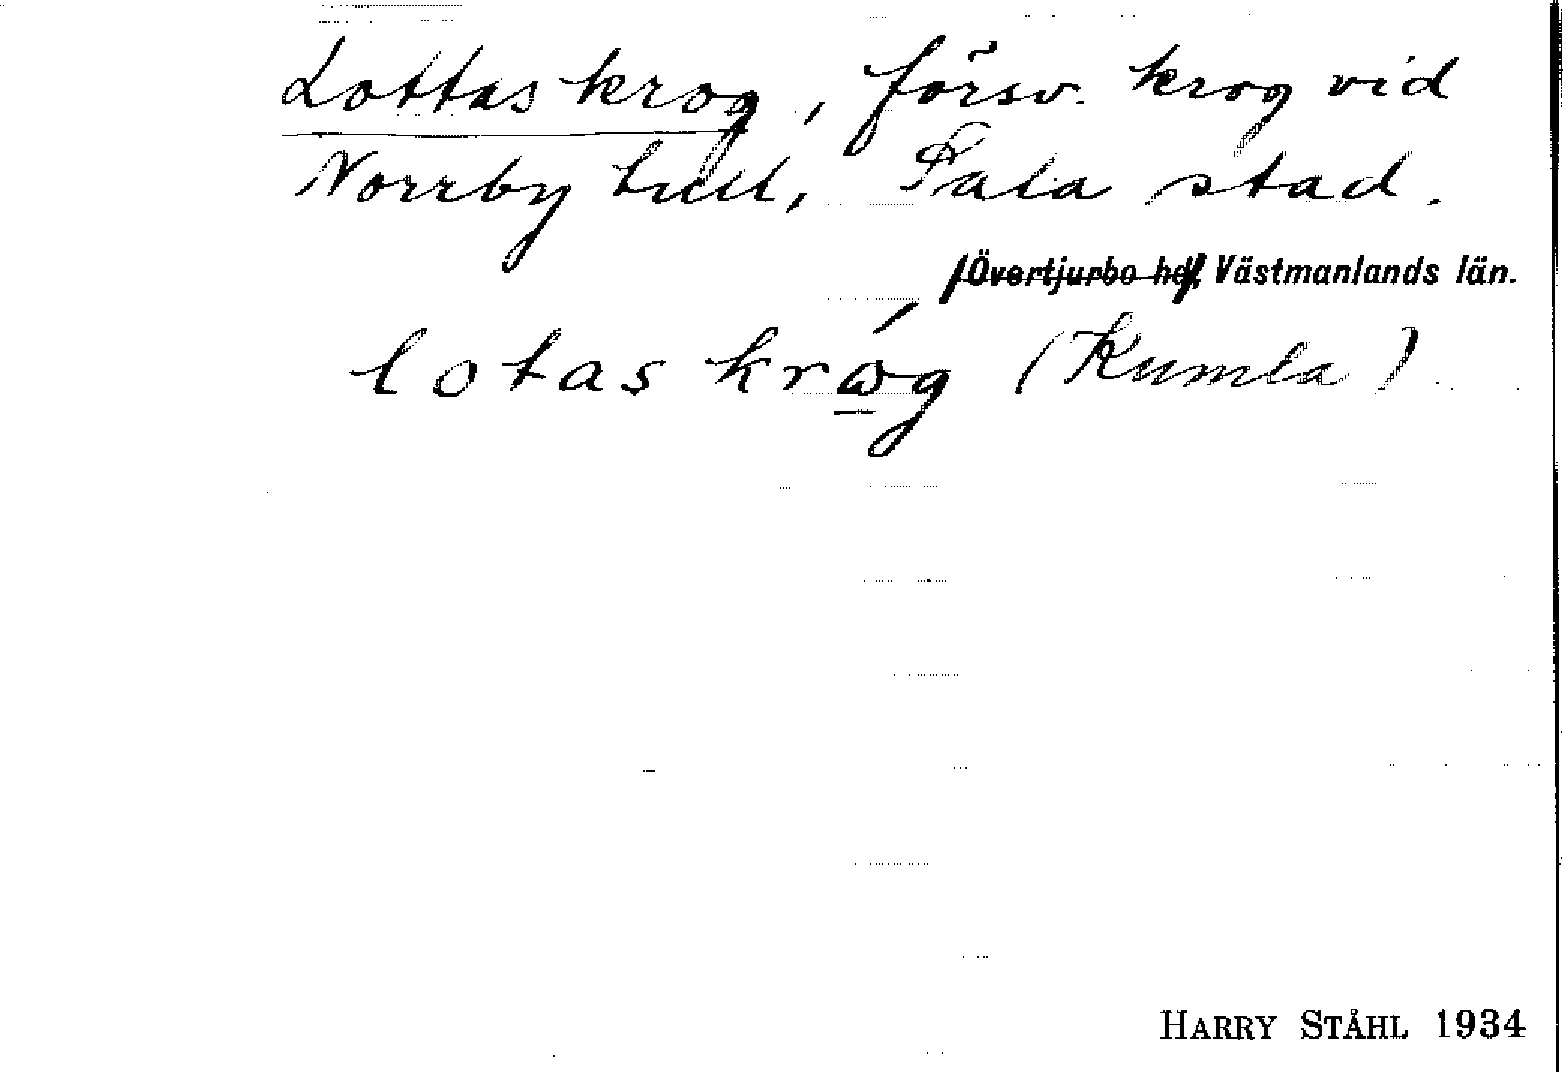 Lottas krog, försv. krog vid
Norrby tull, Sala stad.
Övertjurbo hd, Västmanlands län.
lotas krωg (Kumla)
HARRY STÅHL 1934